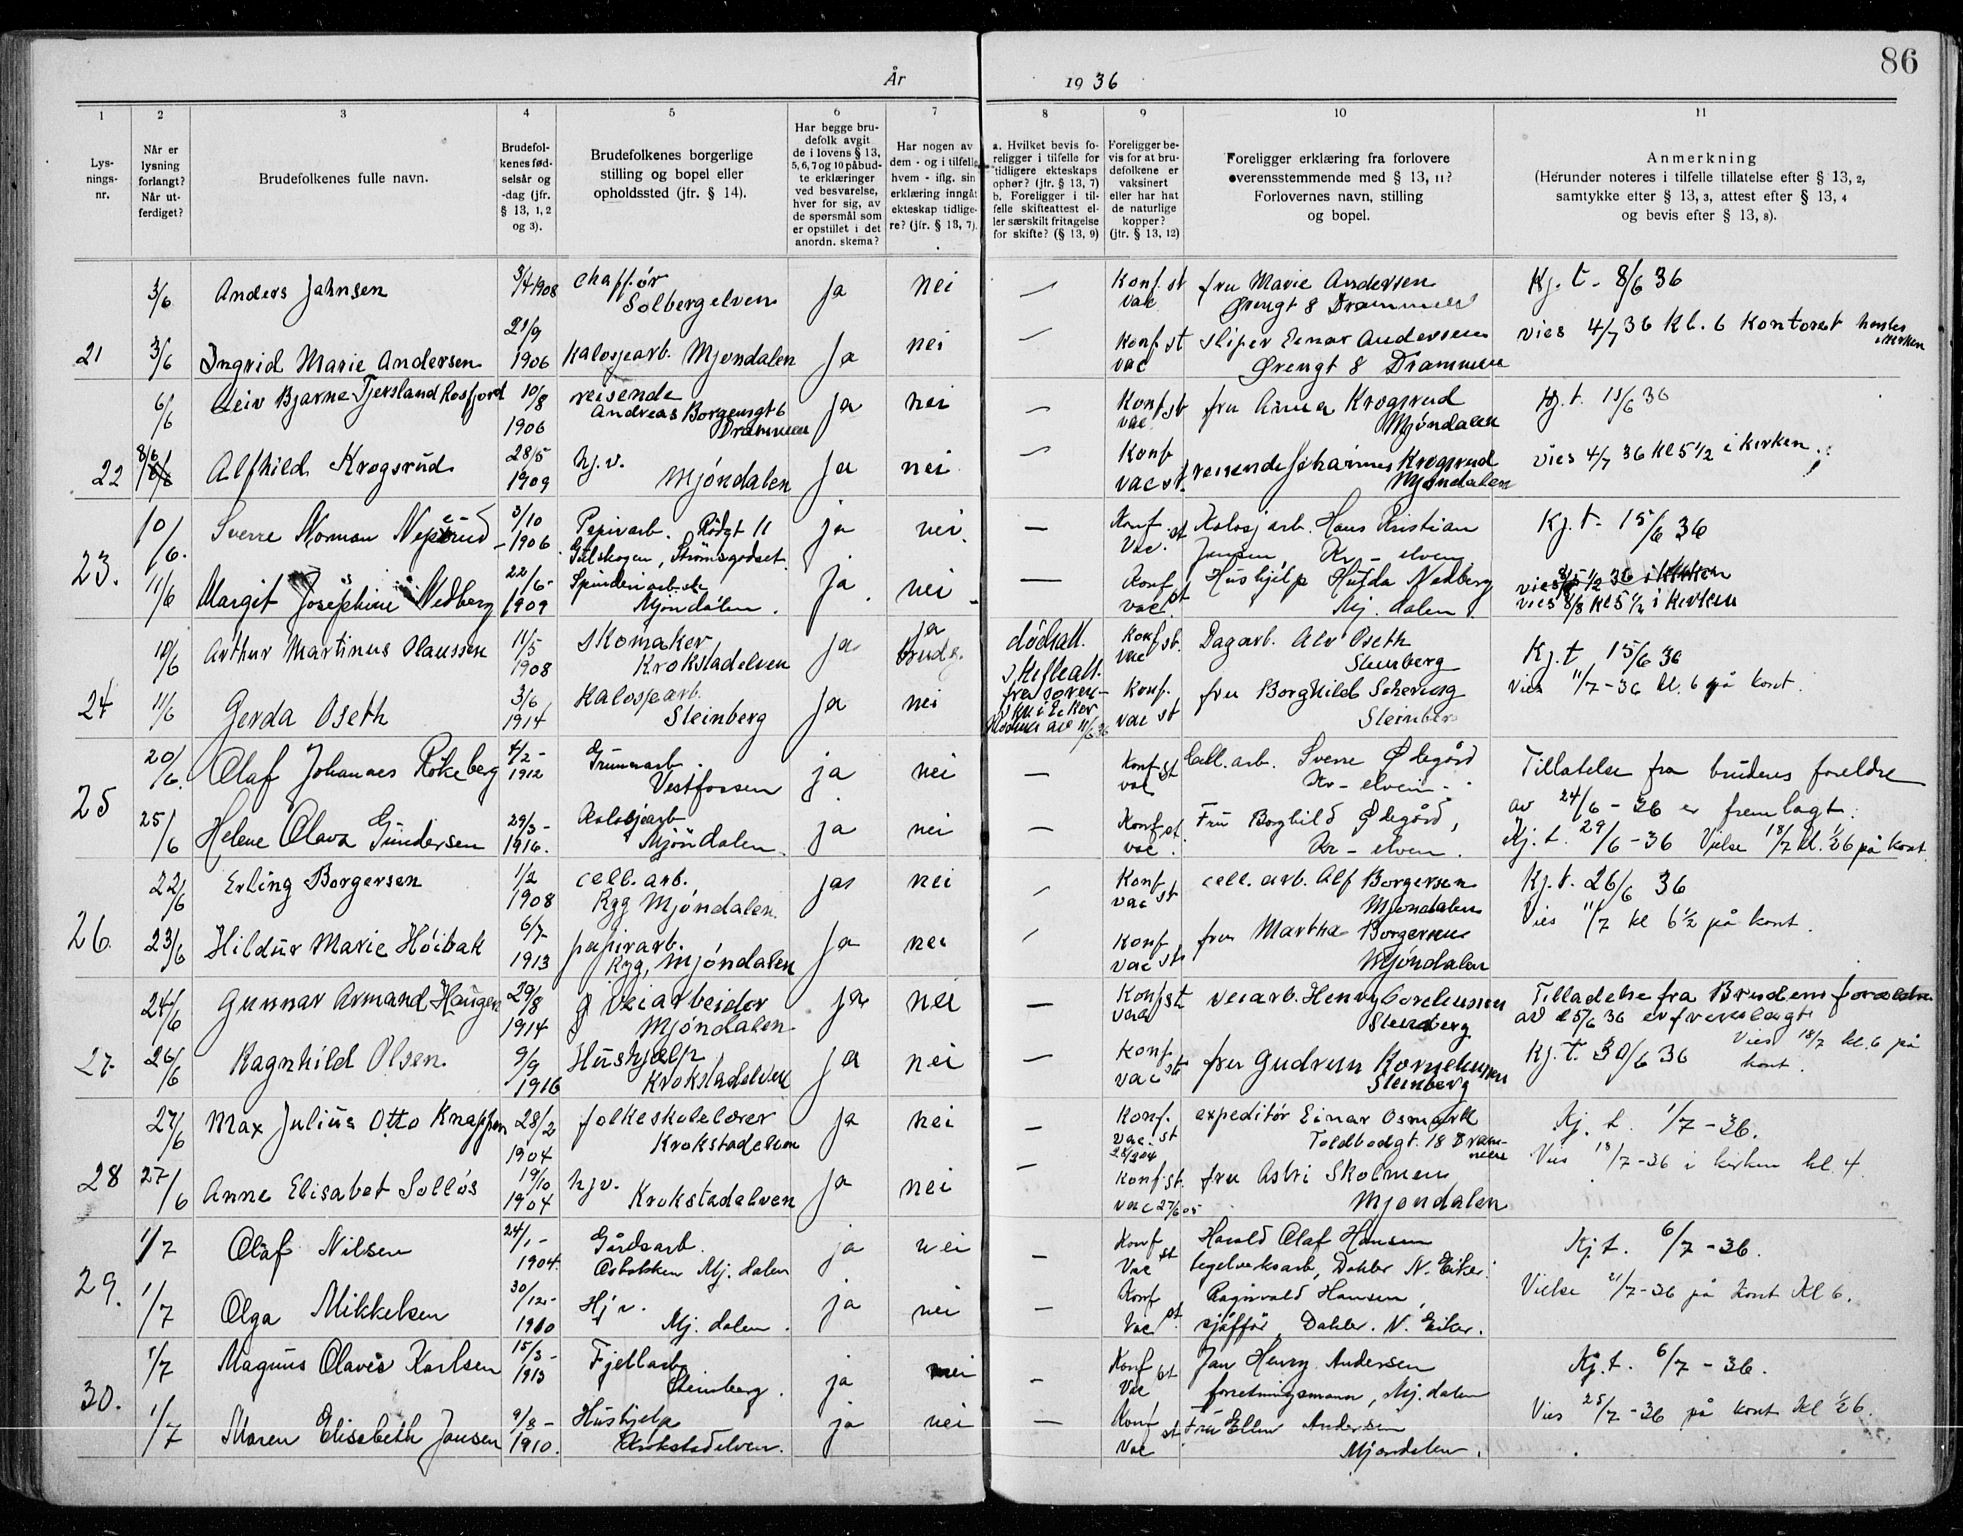 86
År 1936
1 2 3 4 5 6 7 8 9 10 11
Lysnings-nr.
Når er lysning forlangt? Når utferdiget?
Brudefolkenes fulle navn.
Brudefolkenes fødselsår og -dag (jfr. § 13, 1, 2 og 3).
Brudefolkenes borgerlige stilling og bopel eller opholdssted (jfr. § 14).
Har begge brudefolk avgit de i lovens § 13, 5, 6, 7 og 10 påbudte erklæringer ved besvarelse, hver for sig, av de spørsmål som er opstillet i det anordn. skema?
Har nogen av dem - og i tilfelle hvem - iflg. sin erklæring inngåt ekteskap tidligere? (jfr. § 13, 7).
a. Hvilket bevis foreligger i tilfelle for tidligere ekteskaps ophør? (jfr. § 13, 7) b. Foreligger i tilfelle skifteattest eller særskilt fritagelse for skifte? (§ 13, 9)
Foreligger bevis for at brudefolkene er vaksinert eller har hat de naturlige kopper? (jfr. § 13, 12)
Foreligger erklæring fra forlovere overensstemmende med § 13, 11? Forlovernes navn, stilling og bopel.
Anmerkning (Herunder noteres i tilfelle tillatelse efter § 13, 2, samtykke efter § 13, 3, attest efter § 13, 4 og bevis efter § 13, 8).
3/6 Anders Jahnsen 3/4 1908 chaffør Solbergelven ja nei — Konf. st vac fru Marie Andersen Ørengt 8 Drammen Kj. t. 8/6 36
21 3/6 Ingrid Marie Andersen 21/9 1906 kalosjearb. Mjøndalen ja nei — Konf st vac sliper Einar Andersen Ørengt 8 Drammen vies 4/7 36 kl. 6 kontoret
6/6 Leiv Bjarne Tjersland Rosfjord 10/8 1906 reisende Andreas Borgengt 6 Drammen ja nei — Konf st vac fru Anna Krogsrud Mjøndalen Kj. t. 15/6 36
22 8/6 Alfhild Krogsrud 28/5 1909 hj.v. Mjøndalen ja nei — Konf vac st. reisende Johannes Krogsrud Mjøndalen vies 4/7 36 kl 5 1/2 i kirken
10/6. Sverre Norman 3/10 - 1906 Papirarb. Rødgt 11 Gulskogen, Strømsgodset. ja nei. — Konf st Vac. Kalosj arb. Hans Kristian Jansen Kr - elven Kj. t. 15/6 36
23. 11/6 Margit Josephine Nedberg 22/6- 1909 Spinderiarb.ske Mjøndalen. ja. nei - — Konf st vac. Hushjelp Hulda Nedberg Mj. dalen. vies 8/8 kl 5 1/2 i kirken
10/6 Arthur Martinus Olaussen 11/5 1908 skomaker Krokstadelven ja ja brudg. dødsatt. Konf st. vac Dagarb. Alv Oseth Steinberg Kj. t 15/6 36
24 11/6 Gerda Oseth 3/6 1914 kalosjearb. Steinberg ja nei skifteatt. fra soren- skr. i Eiker av 11/6 36 Konf. vac st fru Borghild Steinberg Vies 11/7 - 36 kl. 6 på kont.
20/6. Olaf Johannes Røkeberg 4/2 - 1912 Grunnarb. Vestfossen ja. nei — Konf st vac Cell. arb. Sverre Ødegård Kr - elven. Tillatelse fra brudens foreldre
25 25/6 Helene Olava Gundersen 29/3 - 1916. Kalosjearb Mjøndalen. ja nei — Konf st. vac. Fru Borghild Ødegård, Kr - elven. av 24/6 - 36 er fremlagt. Kj. t. 29/6 - 36 Vielse 18/7 kl. 1/2 6 på kont.
22/6 Erling Borgersen 1/2 1908 cell. arb. Ryg Mjøndalen ja nei — Konf vac st cell. arb. Alf Borgersen Mjøndalen Kj. t. 26/6 36
26. 23/6 Hildur Marie Høibak 6/7- 1913 papirarb. Ryg, Mjøndalen ja nei — Konf vac st. fru Martha Borgersen Mjøndalen Vies 11/7 kl 6 1/2 på kont.
24/6 Gunnar Armand Haugen 29/8 1914 veiarbeider Mjøndalen ja nei — Konf st vac veiarb. Henry Steinberg Tilladelse fra Brudens forældre av 25/6 36 er fremlagt
27 26/6 Ragnhild Olsen. 9/9 1916 Hushjelp Krokstadelven ja nei — Konf vac st fru Gudrun Kornelius­sen Steinberg Kj. t. 30/6 36 Vies 18/7 kl. 6 på kont.
27/6 Max Julius Otto Knapp­en 28/2 1904 folkeskolelærer Krokstadelven ja nei — Konf. vac. st 28/2 04 expeditør Einar Osmark Toldbodgt. 18 Drammen Kj. t. 1/7 - 36.
28 27/6 Anne Elisabet Solløs 19/10 1904 hjv. Krokstadelven ja nei — Konf. st. vac 27/6 05 fru Astri Skolmen Mjøndalen Vies 18/7 - 36 i kirken kl. 4.
1/7 Olaf Nilsen 24/1 - 1904. Gårdsarb. Mj. dalen ja nei — Konf st Vac Harald Olaf Hansen teglverksarb, Dahler N. Eiker. Kj. t. 6/7 - 36.
29. 1/7 Olga Mikkelsen 30/12 - 1900 Hj v. Mj. dalen. ja nei — Konf st Vac Ragnvald Hansen, sjåffør, Dahler. N. Eiker. Vielse 21/7 - 36 på kont kl 6.
1/7 Magnus Olaves Karlsen 15/3 - 1913 Fjellarb. Steinberg. ja nei — Konf st Vac Jan Henry Andersen forretningsmann, Mj. dalen Kj. t. 6/7 - 36.
30. 1/7 Maren Elisabeth Jansen 9/8 - 1910. Hushjelp Krokstadelven. ja nei — Konf st Vac Fru Ellen Andersen Mjøndalen. Vies 25/7 - 36 på kont kl 1/2 6.